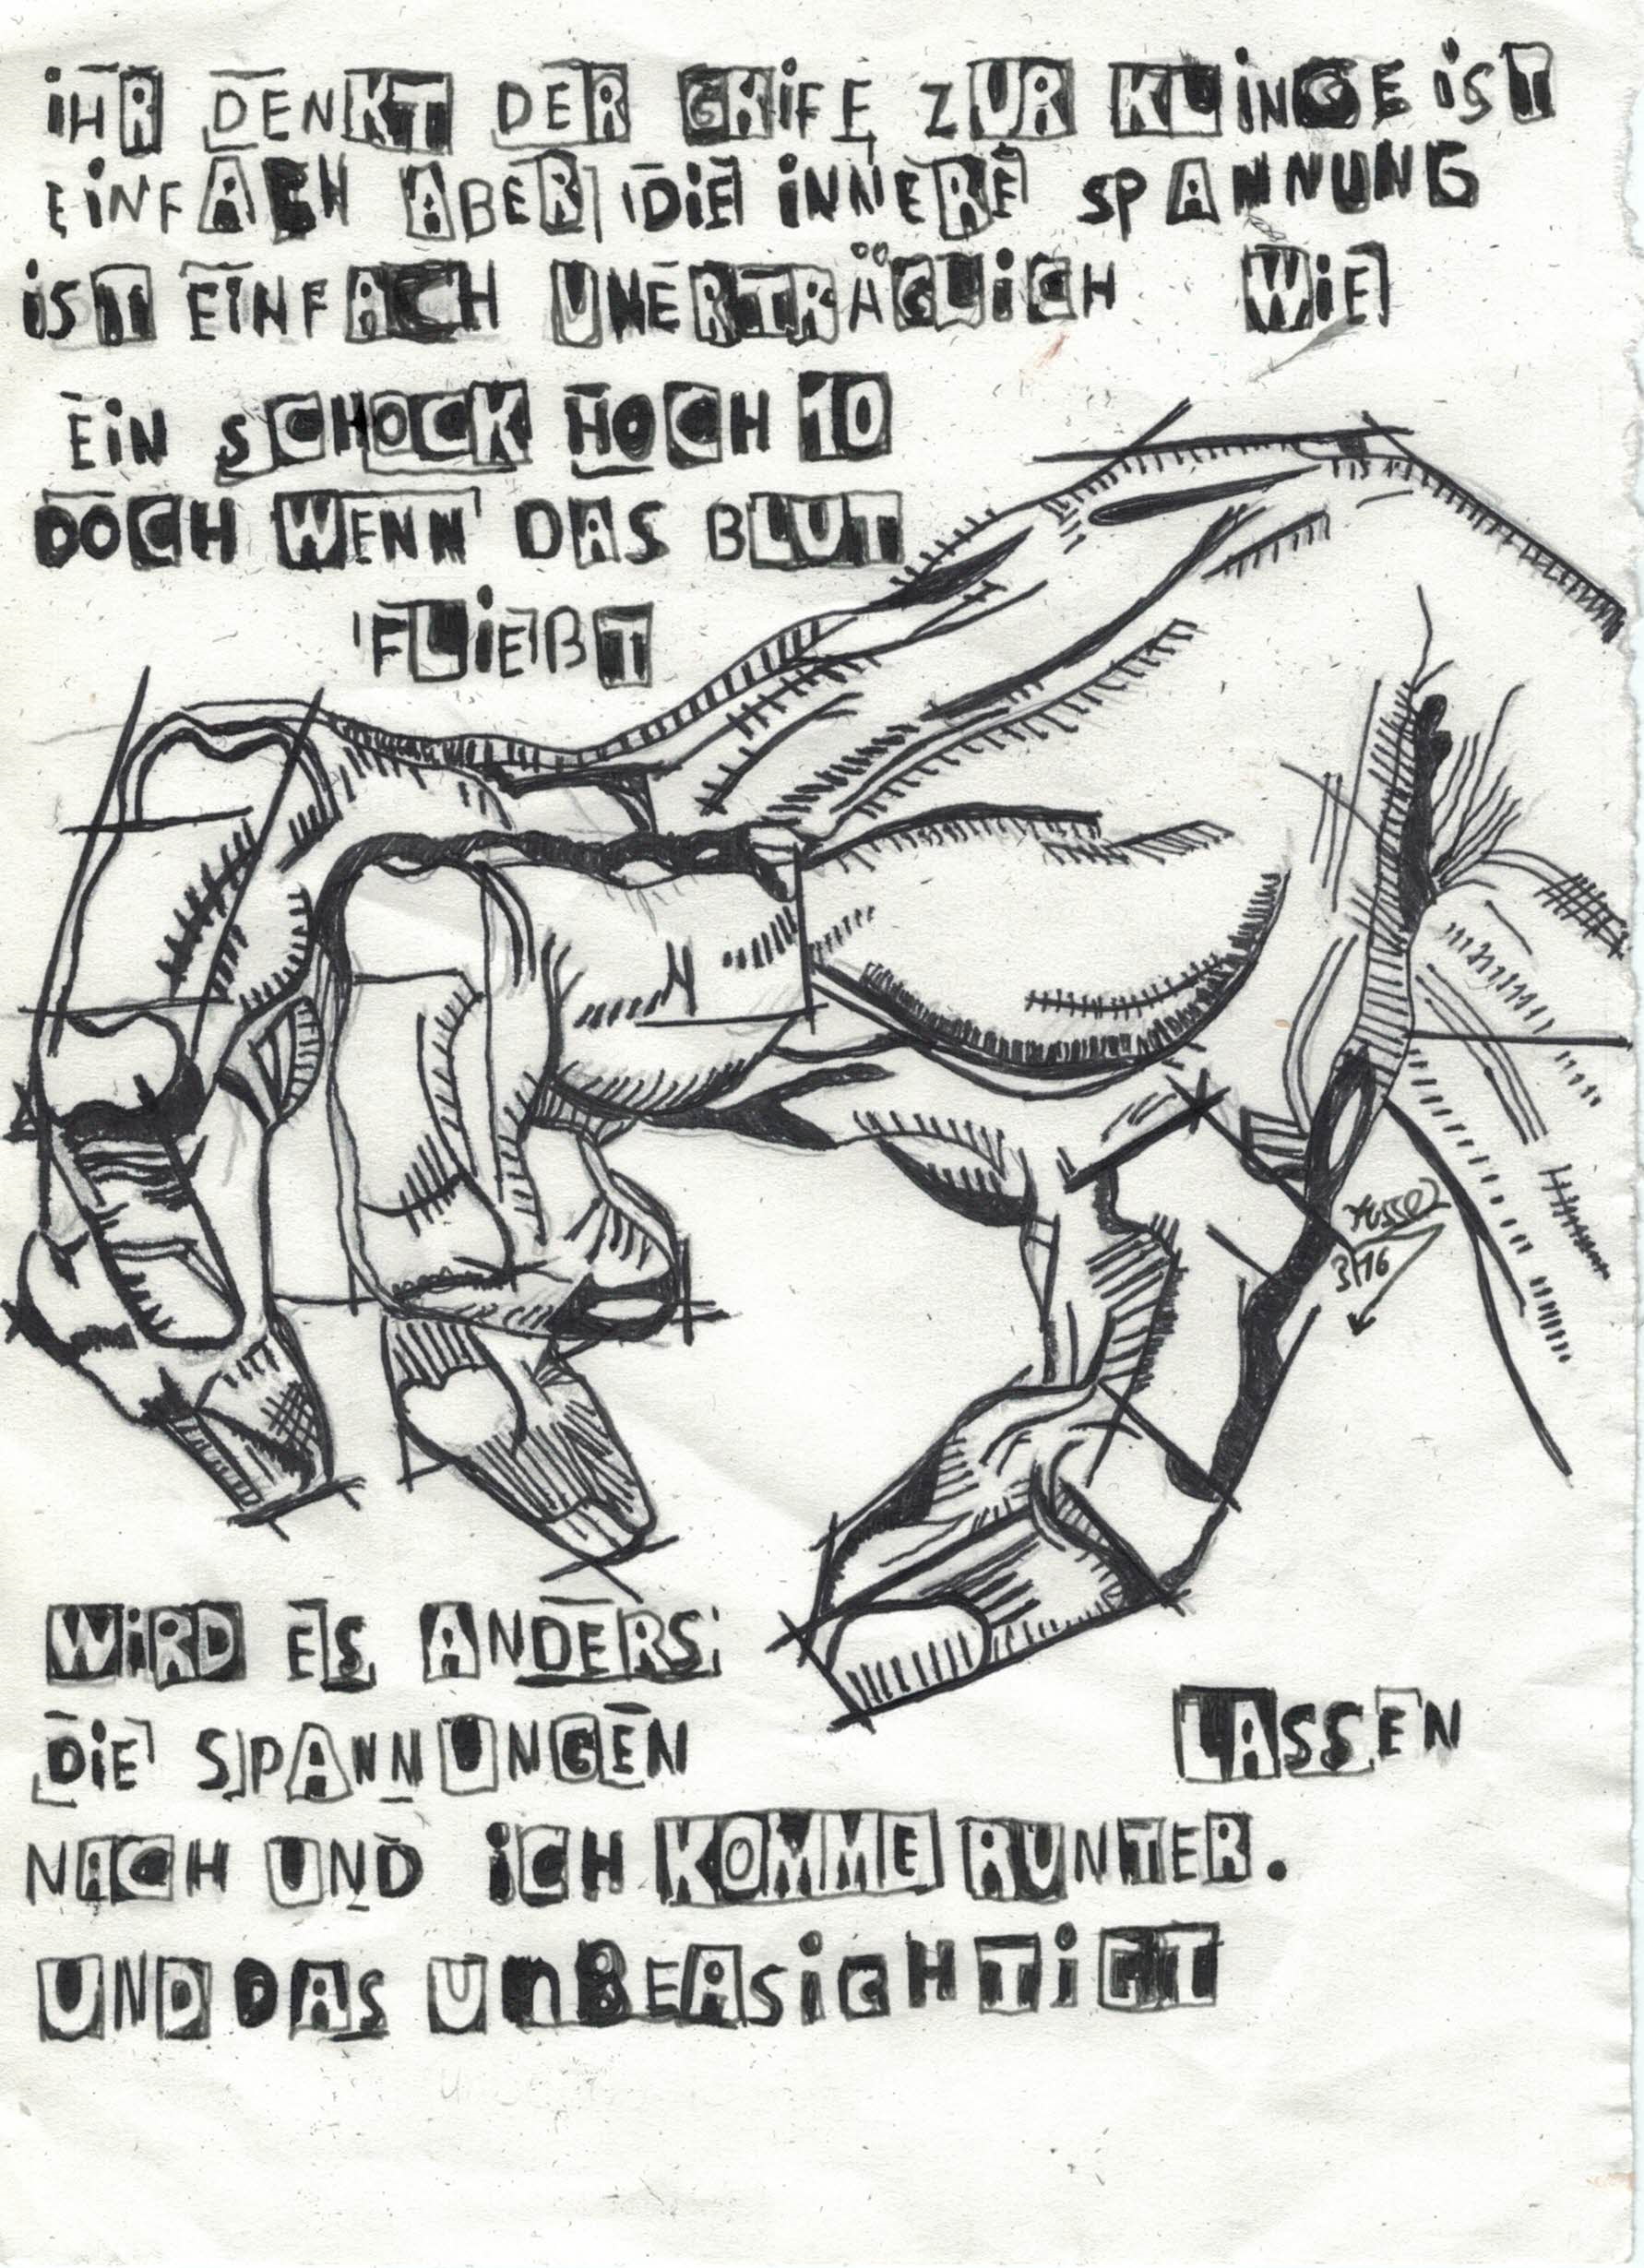 IHR DENKT DER GRIFF ZUR KLINGE IST
EINFACH ABER DIE INNERE SPANNUNG
IST EINFACH UNERTRÄGLICH WIE
EIN SCHOCK HOCH 10
DOCH WENN DAS BLUT
FLIEßT
WIRD ES ANDERS
DIE SPANNUNGEN LASSEN
NACH UND ICH KOMME RUNTER.
UND DAS UNBERSICHTIGT
3/16